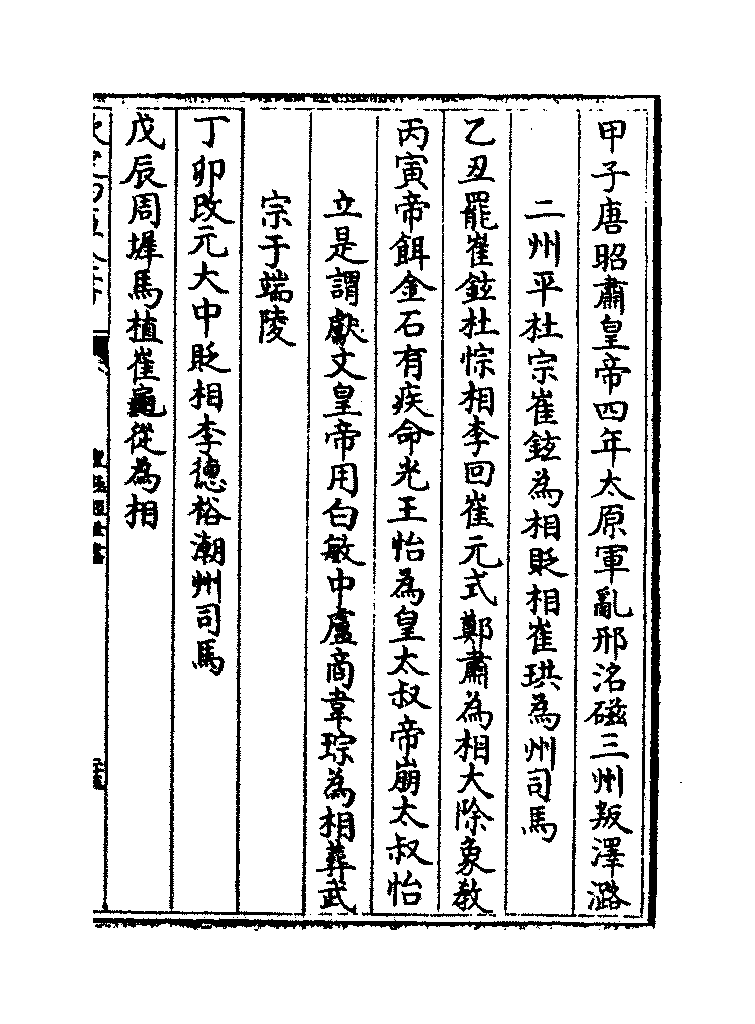 甲子唐昭肅皇帝四年太原軍亂邢洺磁三州叛澤潞
二州平杜宗崔鉉為相貶相崔珙為州司馬
乙丑罷崔鉉杜悰相李回崔元式鄭肅為相大除象教
丙寅帝餌金石有疾命光王怡為皇太叔帝崩太叔怡
立是謂獻文皇帝用白敏中盧商韋琮為相葬武
宗于端陵
丁卯改元大中貶相李德裕潮州司馬
戊辰周墀馬植崔龜從為相